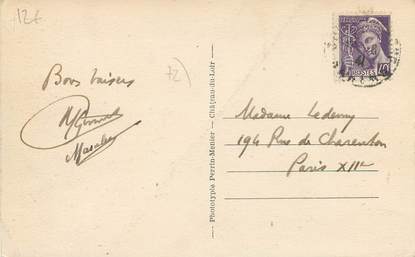 12€
72
Bons baisers
Madame Ledemy
194 Rue de Charenton
Paris XIIe
Phototypie Perrin-Menier — Château-du-Loir
40
POSTES